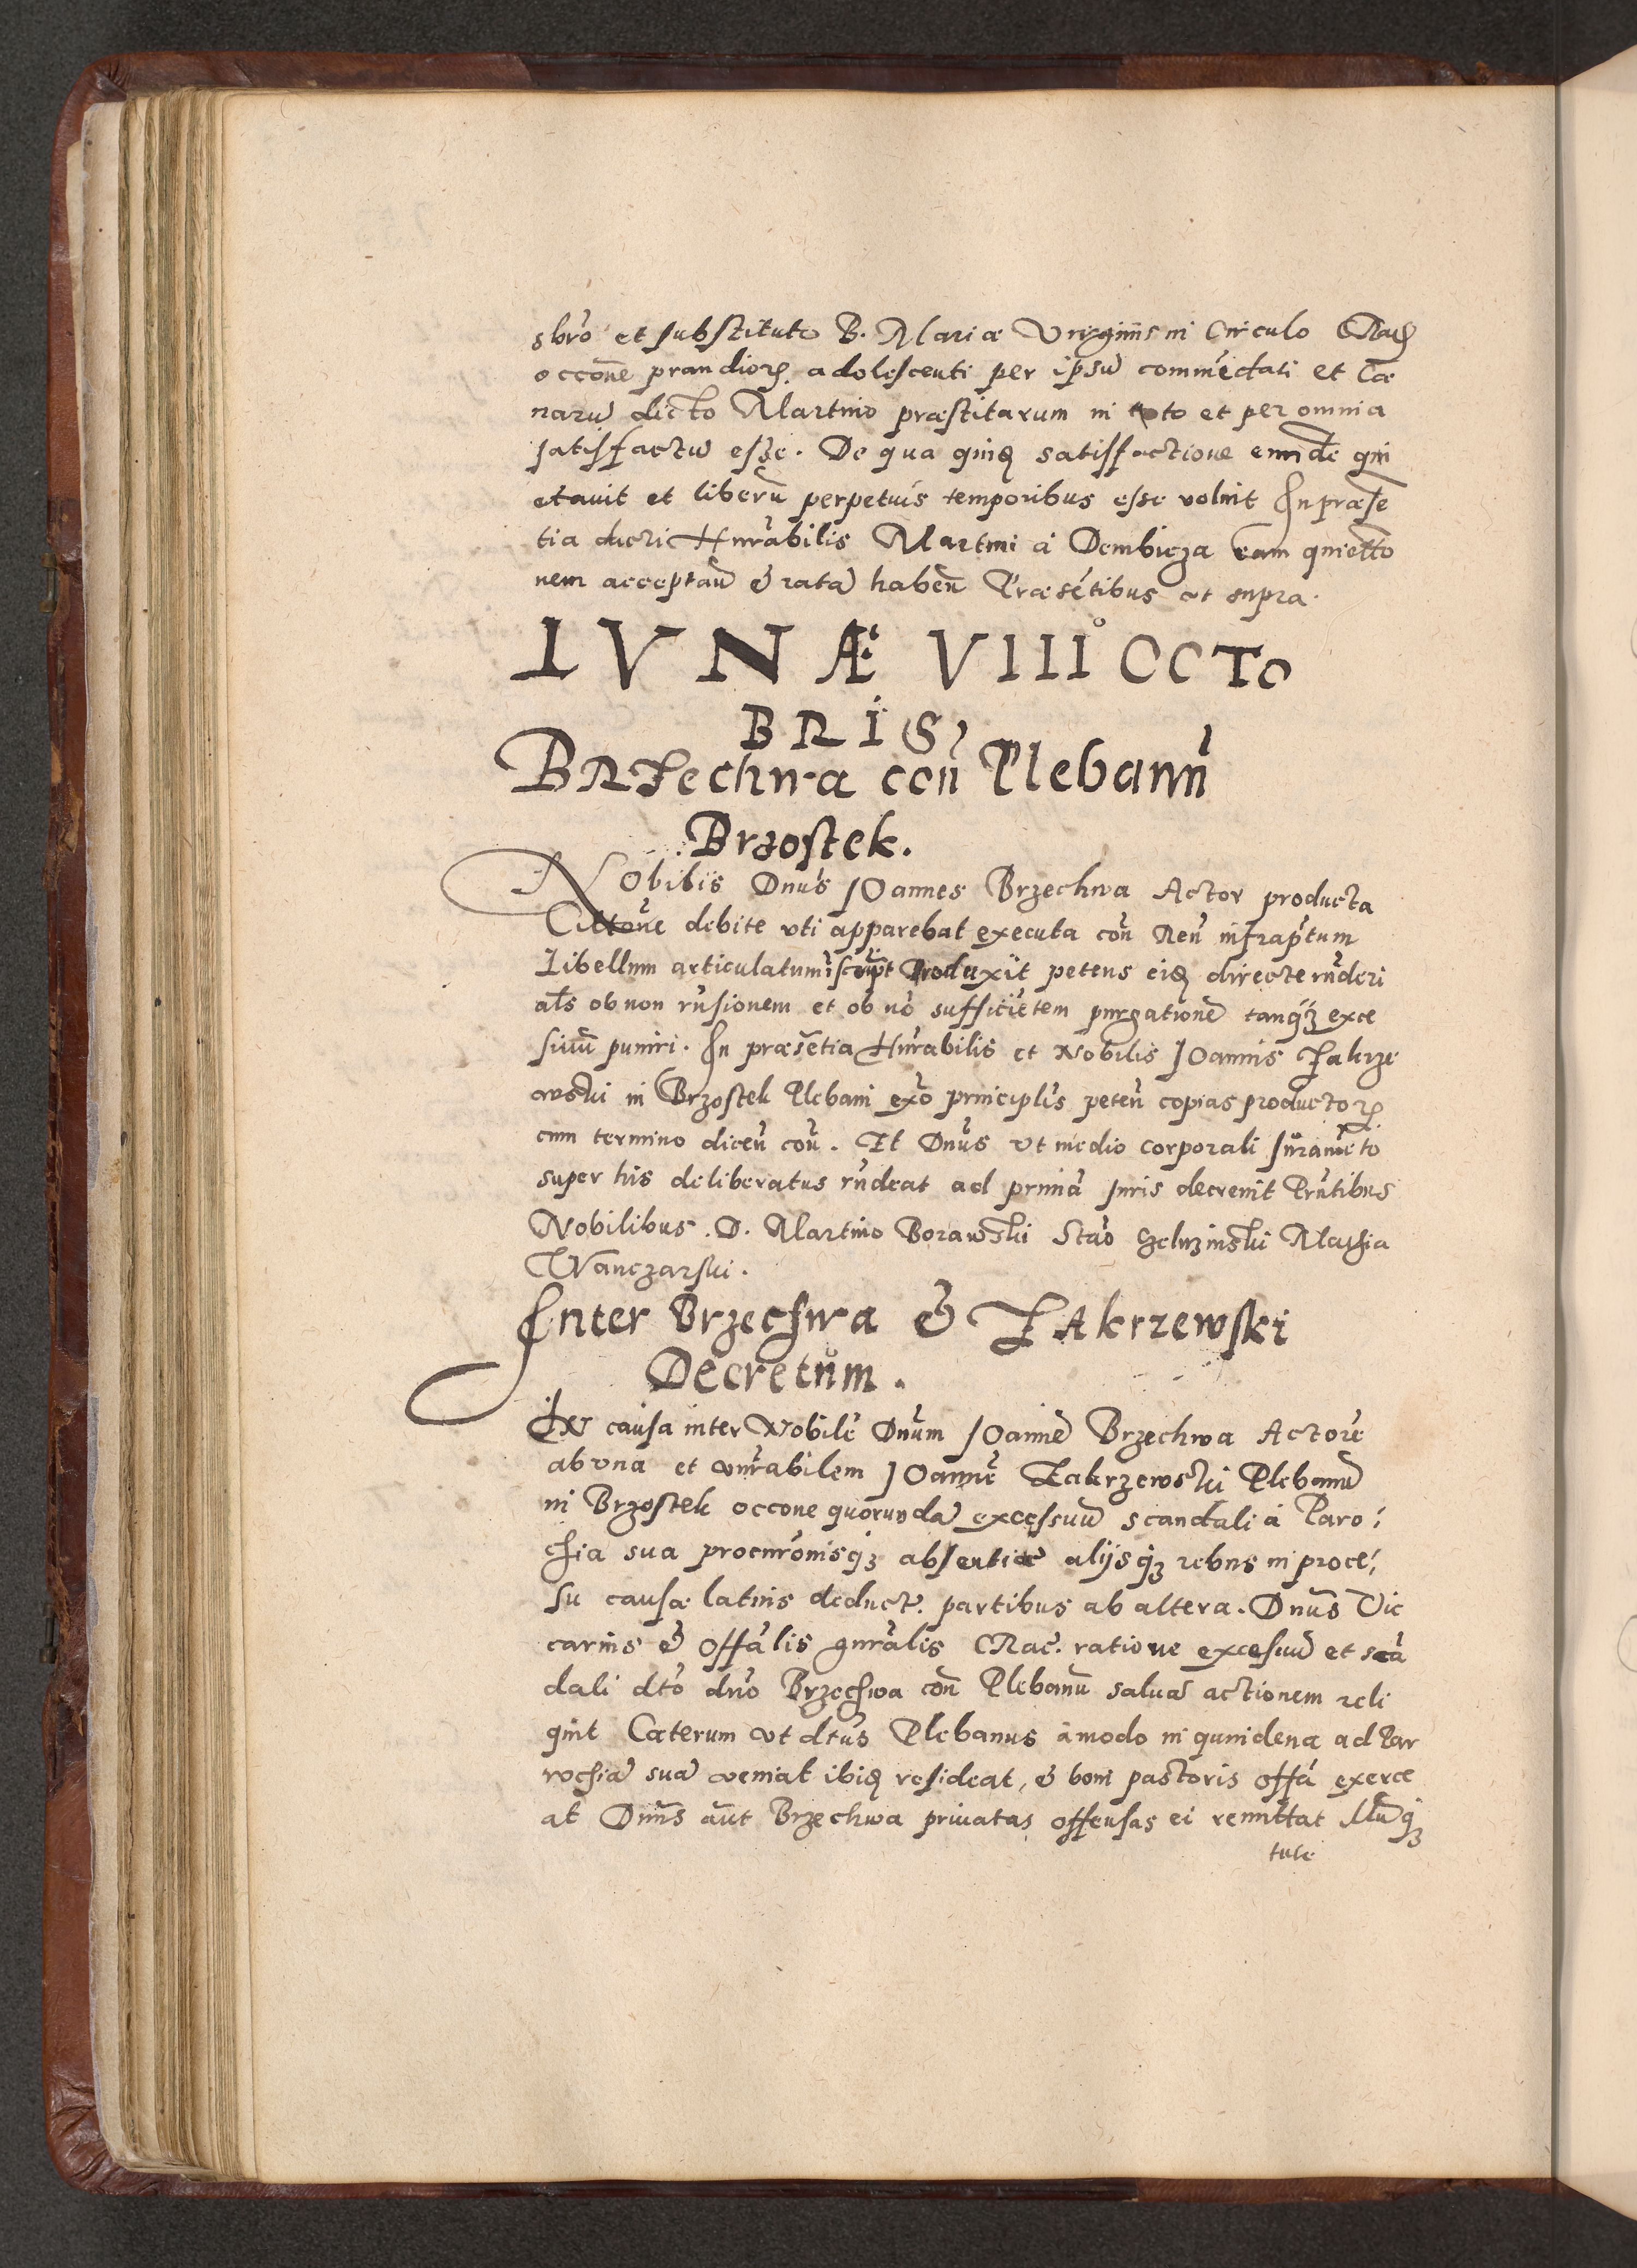 sbrō et substituto B. Mariæ Virginis in Circulo Crac̄
occōne prandior̨ adolescenti per ipsū commēdati et Cæ
narū dicto Martino præstitarum in toto et per omnia
satisfactū esse. De qua quidē satisffactione eundē qui
etauit et liberū perpetuis temporibus esse voluit In præsē
tia dicti Hnrabilis Martini á Dembicza eam quietto
nem acceptān̄ & ratā habēn̄ Præsētibus vt supra.
LVNÆ VIII° OCTO
BRIS,
BRZechwa coñ Plebanū
Brzostek.
NObilis Dnūs IOannes Brzechwa Actor producta
Cittōne debite vti apparebat executa coñ Reū infraptum
Libellum articulatum ī script Produxit petens eiq̨ directe rn̄deri
als ob non rn̄sionem et ob nō sufficiētem purgationē tanq̄ȝ exce
siuū puniri. In præsētia Hnrabilis et Nobilis IOannis Zakrze
wski in Brzostek Plebani exō principlis petēn̄ copias productor̨
cum termino dicēn̄ coñ. Et Dnūs vt medio corporali Iuramēto
super his deliberatus rn̄deat ad primā Iuris decreuit Prn̄tibus
Nobilibus. D. Martino Borawski Stāo Mathia
Wanczarski.
Inter Brzechwa & ZAkrzewski
Decretům.
IN causa inter Nobilē Dnūm IOannē Brzechwa Actorē
ab vna et vnrabilem IOannē Zakrzewski Plebanū
in Brzostek occone quorundā excessuū scandali á Paro
chia sua procurōnisq̨ȝ absentiæ alijsq̨ȝ rebus in proce
su causæ latius deduct. partibus ab altera. Dnūs Vic
carius & Offālis gnrālis Crac. ratione excesuū et scā
dali dtō dnō Brzechwa coñ Plebanū saluā actionem reli
quit Cæterum vt dtūs Plebanus ámodo in quindena ad Par
rochiā suā veniat ibiq̨ resideat, & boni pastoris offā exerce
at Dnūs aūt Brzechwa priuatas offensas ei remittat Illūq̨ȝ
tute